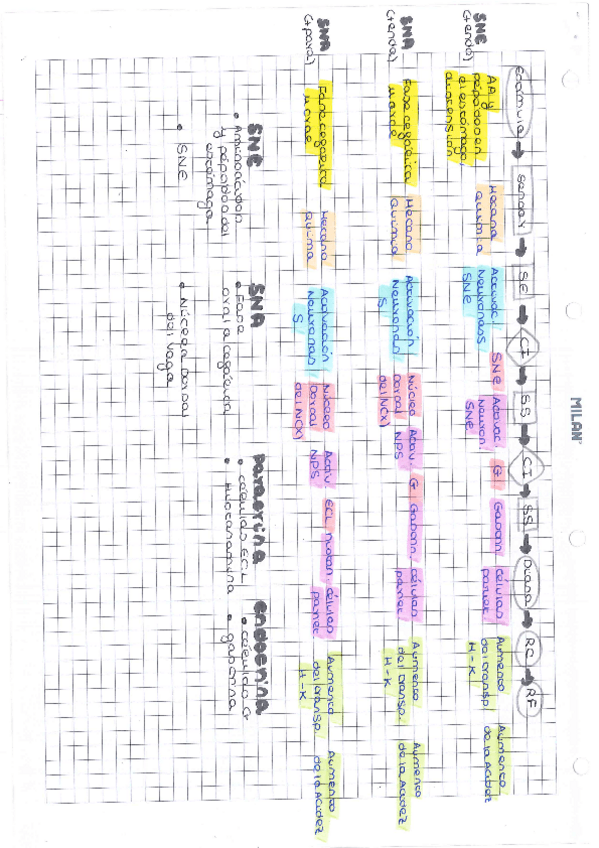 MILAN
Estímulo → Sensor → SE → CI → SS → CI → SS → Diana → RC → RF
SNE (+endo)
AA y
péptidos en
el estómago,
distensión
Mecano
Química
Activac.
Neuronas
SNE
SNE
Activac.
Neuron.
SNE
G
Gastrin.
células
pariet
Aumento
del transp.
H-K
Aumento
de la Acidez
SNA
(+endo)
Fase cefálica
Mecano
Química
Activación
Neuronas
S
Núcleo
Dorsal
del N(X)
Activ.
NPS
G
Gastrin.
células
pariet
Aumento
del transp.
H-K
Aumento
de la Acidez
SNA
(+para)
Fase cefálica
Mecano
Química
Activación
Neuronas
S
Núcleo
Dorsal
del N(X)
Activ.
NPS
ECL
Histam.
células
pariet
Aumento
del transp.
H-K
Aumento
de la Acidez
SNE
• Aminoácidos
y péptidos del
estómago
• SNE
SNA
• Fase
oral a cefálica
• Núcleo Dorsal
del vago
paracrina
• células ECL
• Histamina
endocrina
• células G
• gastrina